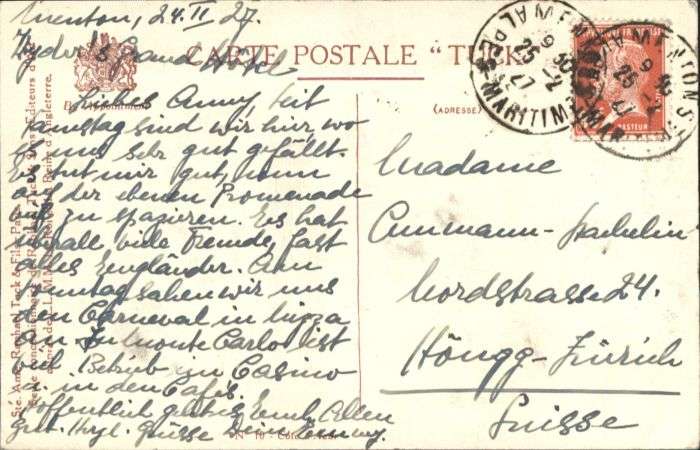 Menton, 24. II 27.
Ryder's Grand Hôtel
CARTE POSTALE "TUCK"
By Appointment
(ADRESSE)
Liebes Anny, seit
Samstag sind wir hier wo
es uns sehr gut gefällt.
Es tut mir gut, nun
auf der ebenen Promenade
zu spazieren. Es hat
überall viele Fremde, fast
alles Engländer. Am
Sonntag sahen wir uns
den Carneval in Nizza
an. In Monte Carlo ist
viel Betrieb im Casino
u. in den Cafés.
Hoffentlich geht es Euch Allen
gut. Hrzl. Grüsse Dein
Nº 10 Côte d'Azur
Ste. Ame. Raphael Tuck & Fils, Paris
Editeurs d'Art
de LL. MM. le Roi et la Reine d'Angleterre.
MENTON
ALPES MARITIMES
9 30
25 -2
27
PASTEUR
Madame
Ammann-
Nordstrasse 24.
Höngg-Zürich
Suisse